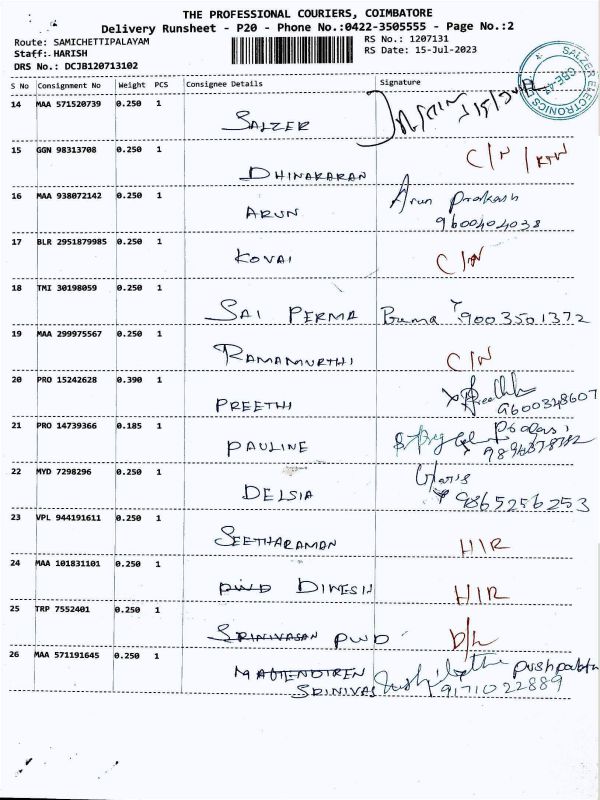 THE PROFESSIONAL COURIERS, COIMBATORE
Delivery Runsheet - P20 - Phone No.:0422-3505555 - Page No.:2
Route: SAMICHETTIPALAYAM RS No.: 1207131
Staff: HARISH RS Date: 15-Jul-2023
DRS No.: DCJB120713102
SALZER ELECTRONICS
CBE-47
S No Consignment No Weight PCS Consignee Details Signature
14 MAA 571520739 0.250 1
SALZER
15 GGN 98313708 0.250 1 C/N
DHINAKARAN
16 MAA 938072142 0.250 1 Arun Prakash
ARUN 9600404038
17 BLR 2951879985 0.250 1
KOVAI C/N
18 TMI 30198059 0.250 1
SAI PERMA 9003501372
19 MAA 299975567 0.250 1
RAMAMURTHI C/N
20 PRO 15242628 0.390 1
PREETHI 9600348607
21 PRO 14739366 0.185 1
PAULINE
22 MYD 7298296 0.250 1
DELSIA 9865256253
23 VPL 944191611 0.250 1
SEETHARAMAN H/R
24 MAA 101831101 0.250 1
PWD DINESH H/R
25 TRP 7552401 0.250 1
SRINIVASAN PWD D/L
26 MAA 571191645 0.250 1
MAHENDIREN
SRINIVAS 9171022889